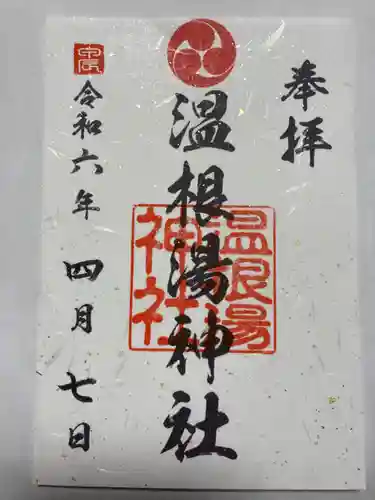 奉拝
温根湯神社
温根湯神社
令和六年四月七日